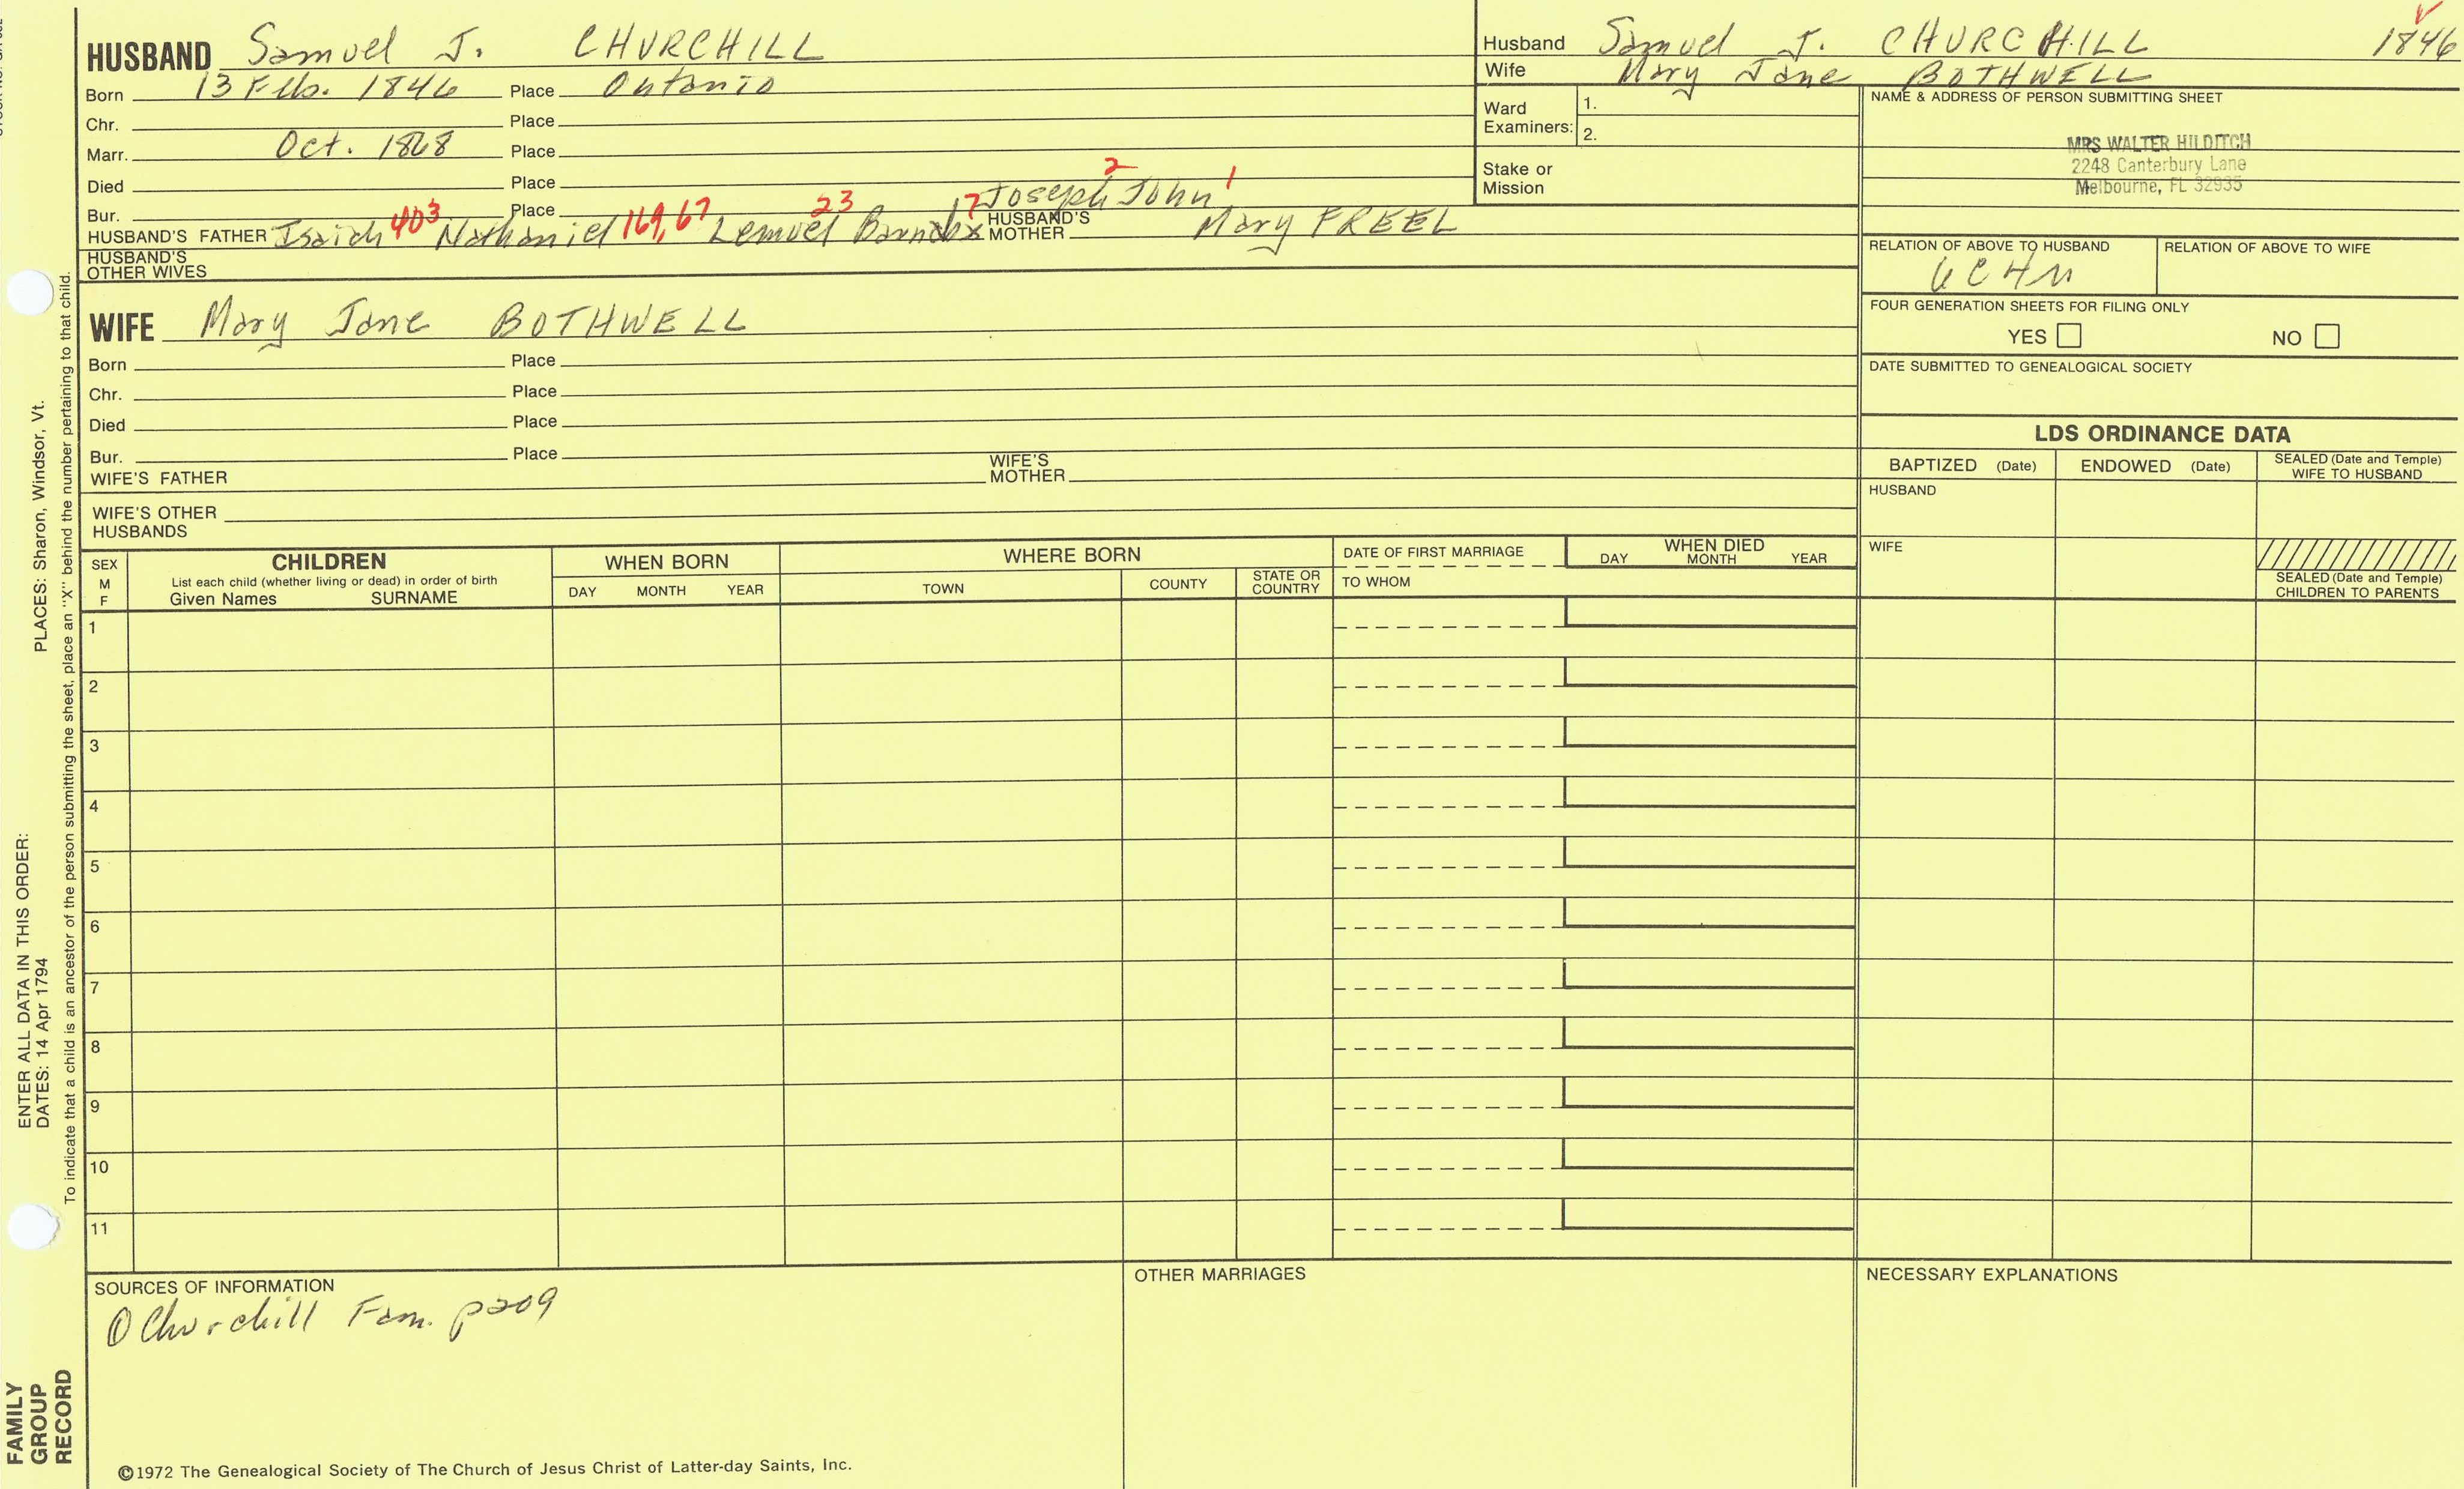 HUSBAND Samuel J. CHURCHILL
Born 13 Feb. 1846 Place Ontario
Chr. Place
Marr. Oct. 1868 Place
Died Place
Bur. Place
2 1
23 17 Joseph John
HUSBAND'S FATHER Isaich 403 Nathaniel 169,67 Lemuel Barnabx HUSBAND'S MOTHER Mary FREEL
HUSBAND'S OTHER WIVES
Husband Samuel J. CHURCHILL 1846
Wife Mary Jane BOTHWELL
Ward Examiners: 1.
2.
Stake or Mission
NAME & ADDRESS OF PERSON SUBMITTING SHEET
MRS WALTER HILDITCH
2248 Canterbury Lane
Melbourne, FL 32935
RELATION OF ABOVE TO HUSBAND RELATION OF ABOVE TO WIFE
FOUR GENERATION SHEETS FOR FILING ONLY
YES NO
DATE SUBMITTED TO GENEALOGICAL SOCIETY
WIFE Mary Jane BOTHWELL
Born Place
Chr. Place
Died Place
Bur. Place
WIFE'S FATHER WIFE'S MOTHER
WIFE'S OTHER HUSBANDS
LDS ORDINANCE DATA
BAPTIZED (Date) ENDOWED (Date) SEALED (Date and Temple) WIFE TO HUSBAND
HUSBAND
WIFE
SEALED (Date and Temple) CHILDREN TO PARENTS
SEX M F
CHILDREN
List each child (whether living or dead) in order of birth
Given Names SURNAME
WHEN BORN
DAY MONTH YEAR
WHERE BORN
TOWN COUNTY STATE OR COUNTRY
DATE OF FIRST MARRIAGE
TO WHOM
WHEN DIED
DAY MONTH YEAR
1
2
3
4
5
6
7
8
9
10
11
SOURCES OF INFORMATION
① Churchill Fam. p209
OTHER MARRIAGES
NECESSARY EXPLANATIONS
©1972 The Genealogical Society of The Church of Jesus Christ of Latter-day Saints, Inc.
FAMILY GROUP RECORD
ENTER ALL DATA IN THIS ORDER:
DATES: 14 Apr 1794
PLACES: Sharon, Windsor, Vt.
To indicate that a child is an ancestor of the person submitting the sheet, place an "X" behind the number pertaining to that child.